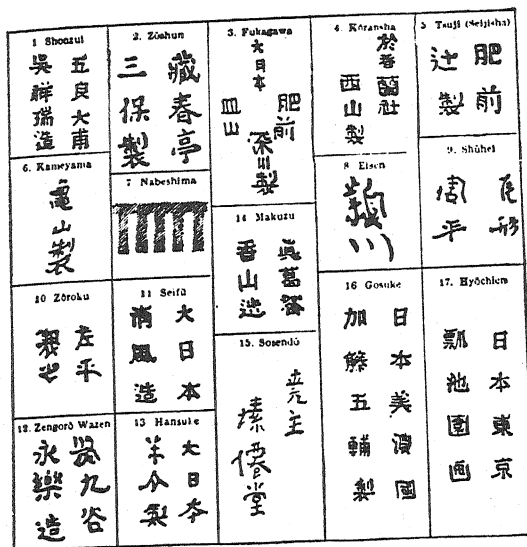 1 Shonzui
五良大甫
吳祥瑞造
2. Zōshun
藏春亭
三保製
3. Fukagawa
大日本
肥前
皿山
深川製
4. Kōransha
蘭社
西山製
5 Tsuji (Seijisha)
肥前
辻製
6. Kameyama
亀山製
7 Nabeshima
8 Eisen
川
9. Shūhei
尾形
周平
10 Zōroku
11 Seifū
大日本
清風造
12. Zengorō Wazen
於九谷
永樂造
13 Hansuke
大日本
半介製
14 Makuzu
眞葛窯
香山造
15. Sosendō
16 Gosuke
日本美濃國
加藤五輔製
17. Hyōchien
日本東京
瓢池園画